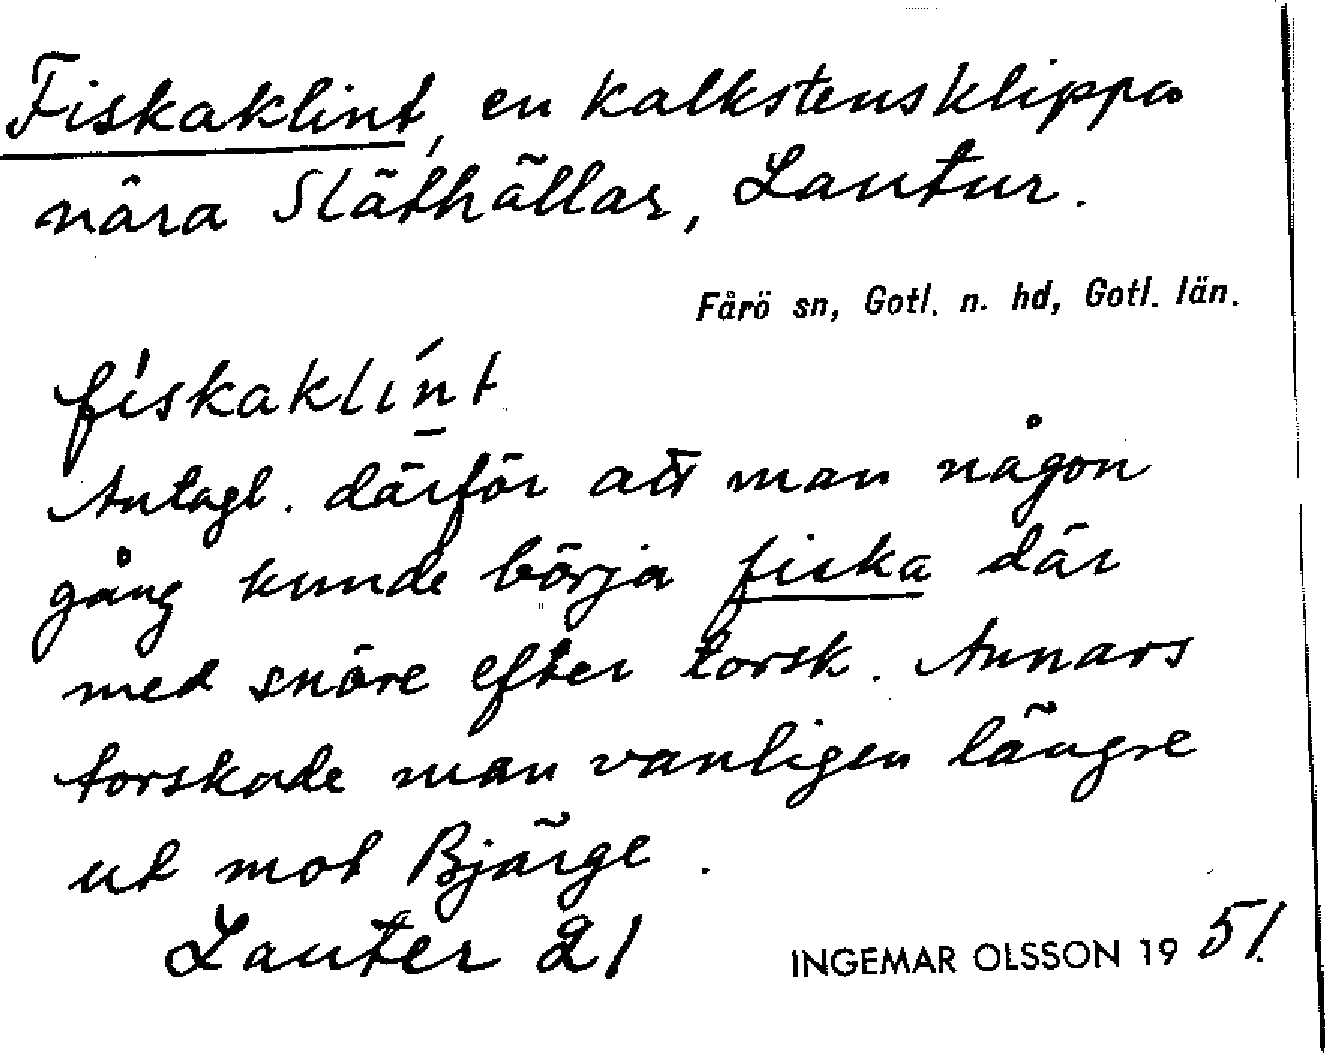 Fiskaklint, en kalkstensklippa
nära Släthällar, Lautur.
Fårö sn, Gotl. n. hd, Gotl. län.
fiskaklint
Antagl. därför att man någon
gång kunde börja fiska där
med snöre efter torsk. Annars
torskade man vanligen längre
ut mot Bjärge.
Lauter 21
INGEMAR OLSSON 1951.